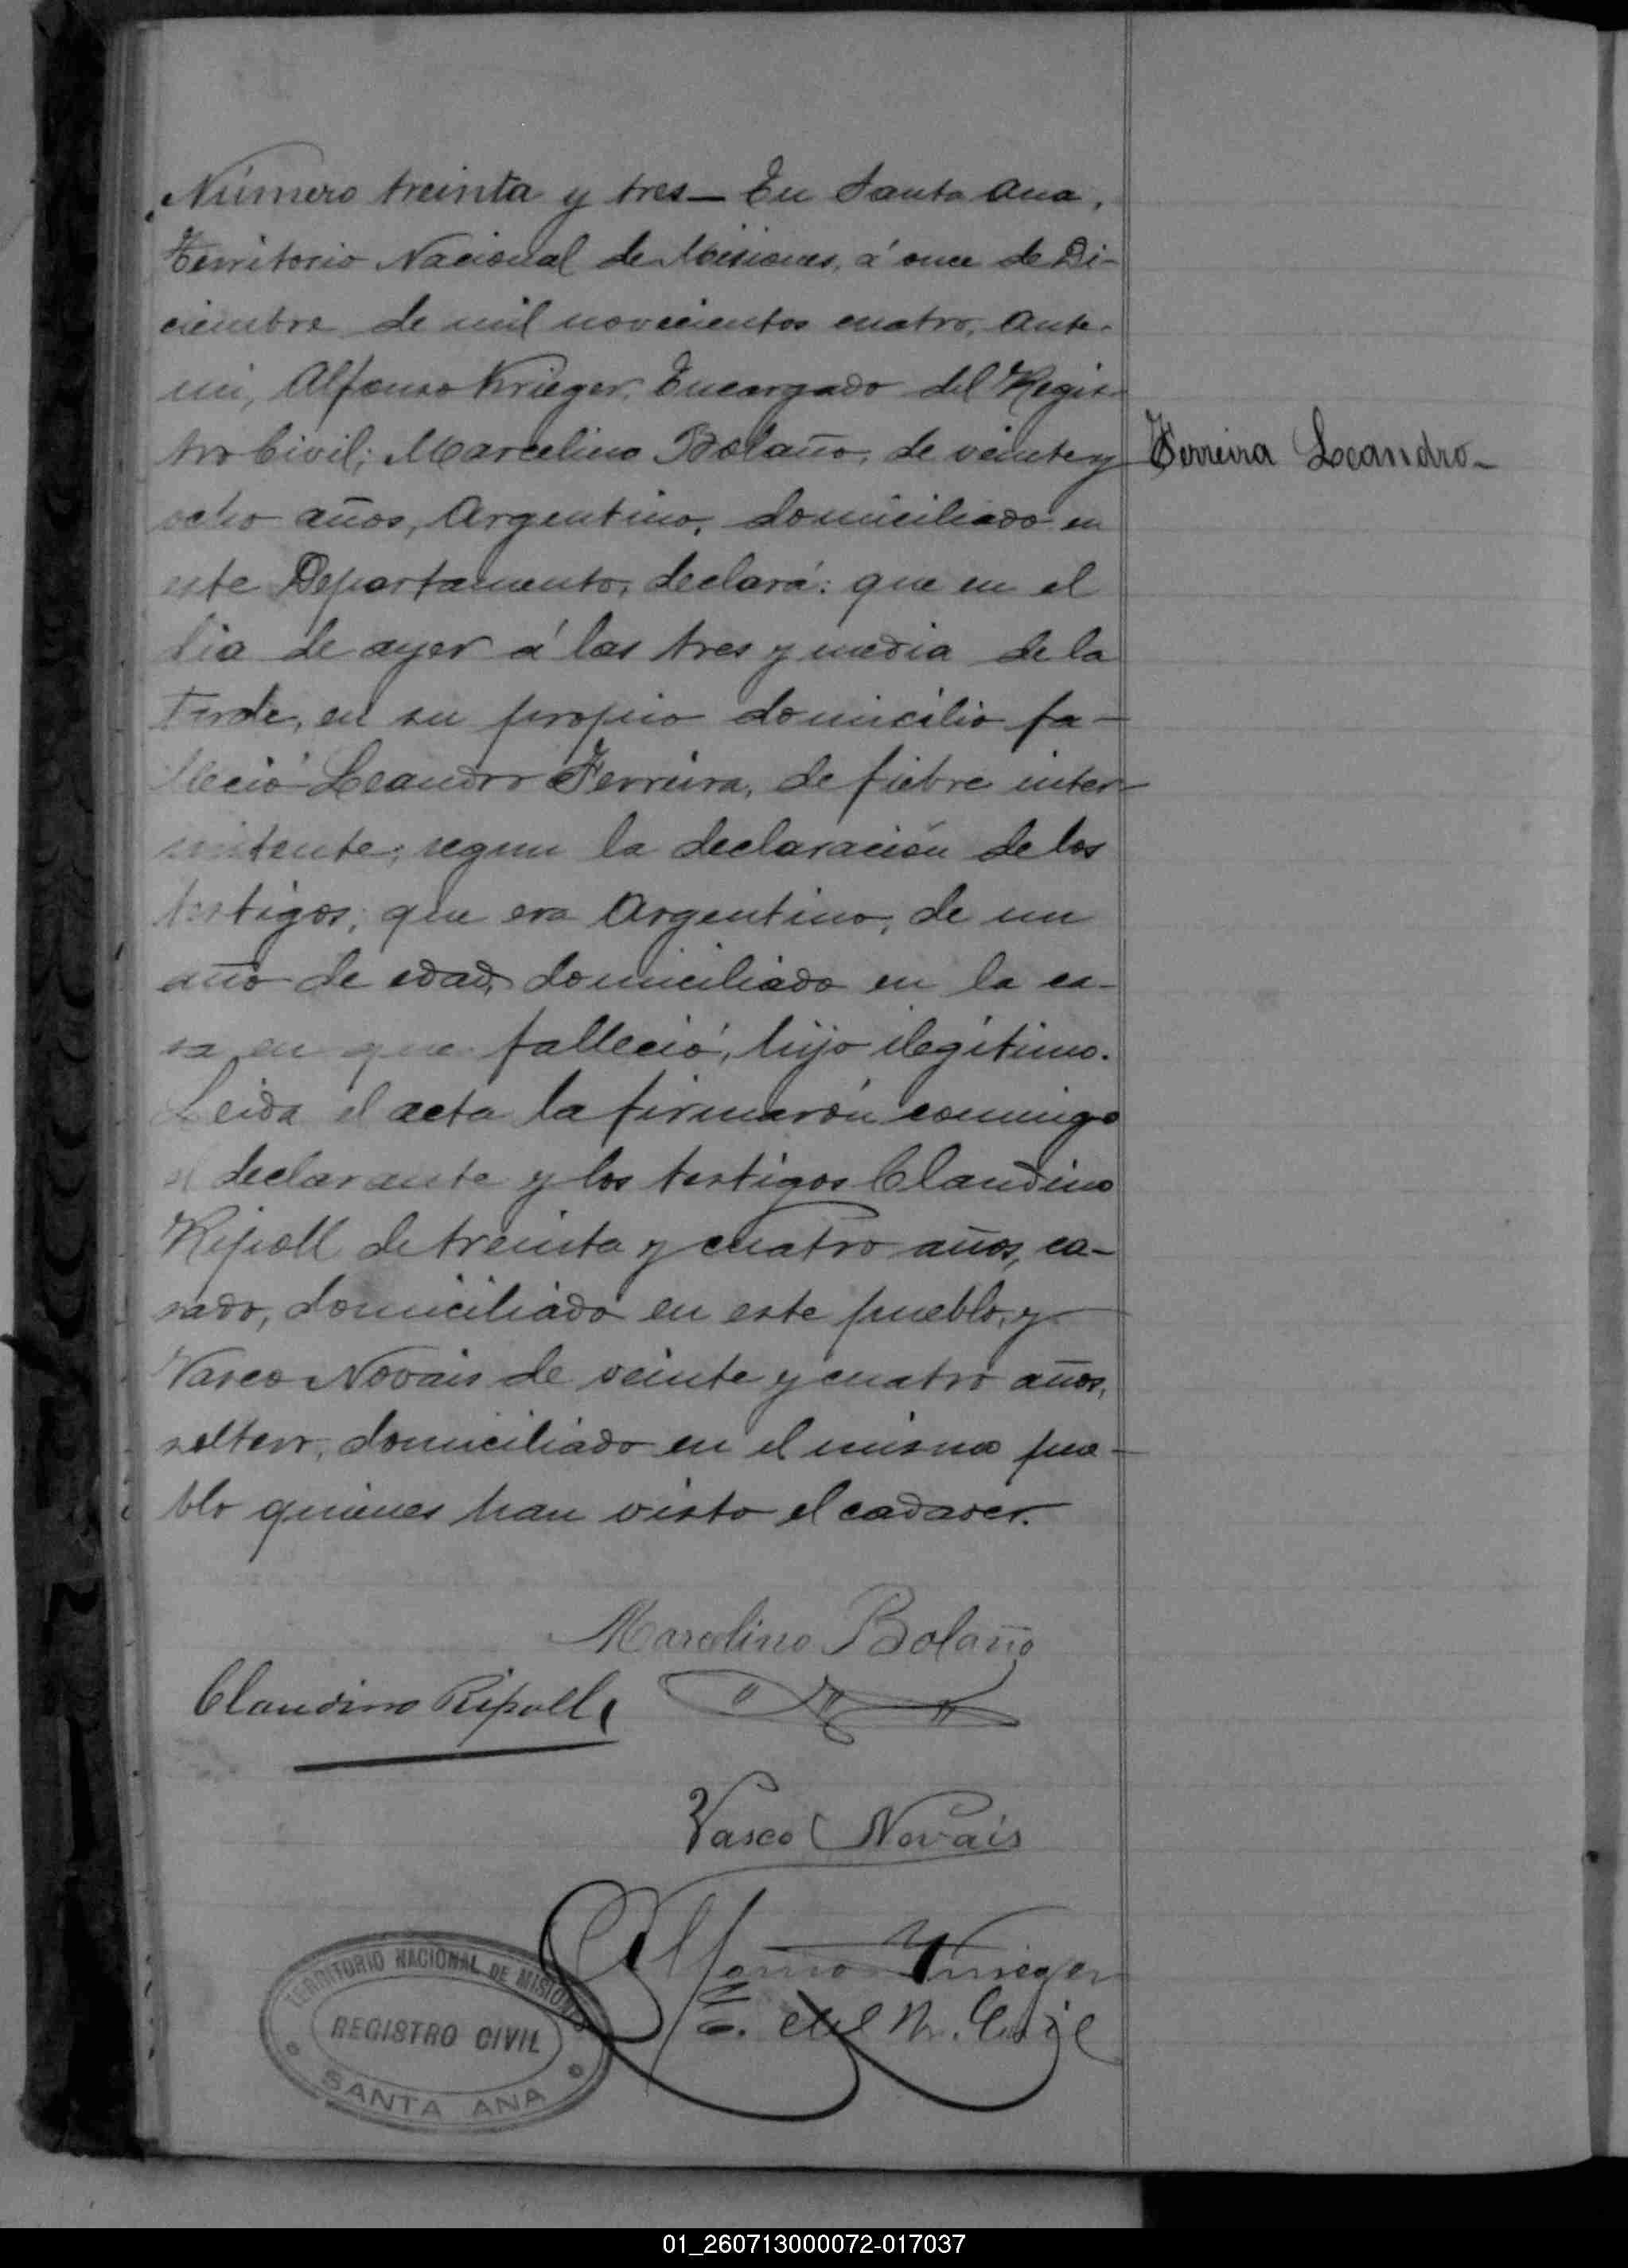 Número treinta y tres — En Santa Ana,
Territorio Nacional de Misiones, á once de Di-
ciembre de mil novecientos cuatro, Ante
mi, Alfonso Krieger, Encargado del Regis-
tro Civil; Marcelino Bolaño, de veinte y
ocho años, Argentino, domiciliado en
este Departamento, declará: que en el
dia de ayer á las tres y media de la
Tarde, en su propio domicilio fa-
lleció Leandro Ferreira, de fiebre inter-
mitente, segun la declaración de los
testigos; que era Argentino, de un
año de edad, domiciliado en la ca-
sa en que falleció, hijo ilegítimo.
Leida el acta la firmarón conmigo
el declarante y los testigos Claudino
Ripoll de treinta y cuatro años, ca-
sado, domiciliado en este pueblo, y
Vasco Novais de veinte y cuatro años,
soltero, domiciliado en el mismo pue-
blo quienes han visto el cadaver.
Ferreira Leandro-
Marcelino Bolaño
Claudino Ripoll
Vasco Novais
Alfonso Krieger
E. del R. Civil
TERRITORIO NACIONAL DE MISIONES
REGISTRO CIVIL
SANTA ANA
01_260713000072-017037